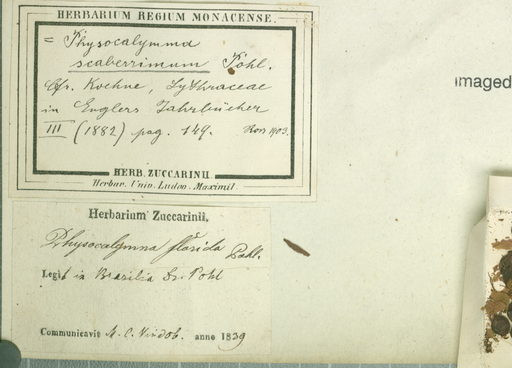 HERBARIUM REGIUM MONACENSE.
= Physocalymma
scaberrimum Pohl.
Cfr. Koehne, Lythraceae
in Englers Jahrbücher
III (1882) pag. 149. Ross 1903.
HERB. ZUCCARINII.
Herbar. Univ. Ludov. Maximil.
Herbarium Zuccarinii,
Physocalymna florida Pohl.
Legit in Brasilia Dr. Pohl
Communicavit M. C. Vindob. anno 1839
Imaged